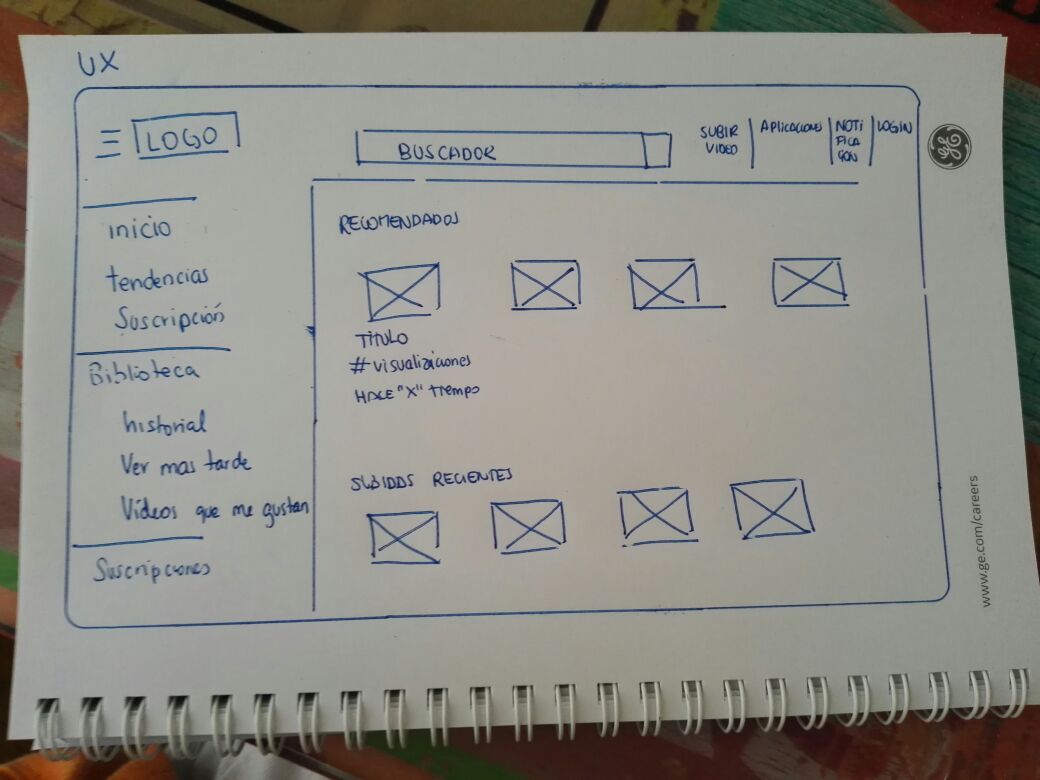 UX
LOGO
BUSCADOR
SUBIR
VIDEO
Aplicaciones
NOTI
FICA
CIÓN
LOGIN
inicio
tendencias
Suscripción
Biblioteca
historial
Ver mas tarde
Vídeos que me gustan
Suscripciones
RECOMENDADOS
TITULO
# visualizaciones
HACE "X" tiempo
SUBIDAS RECIENTES
GE
www.ge.com/careers